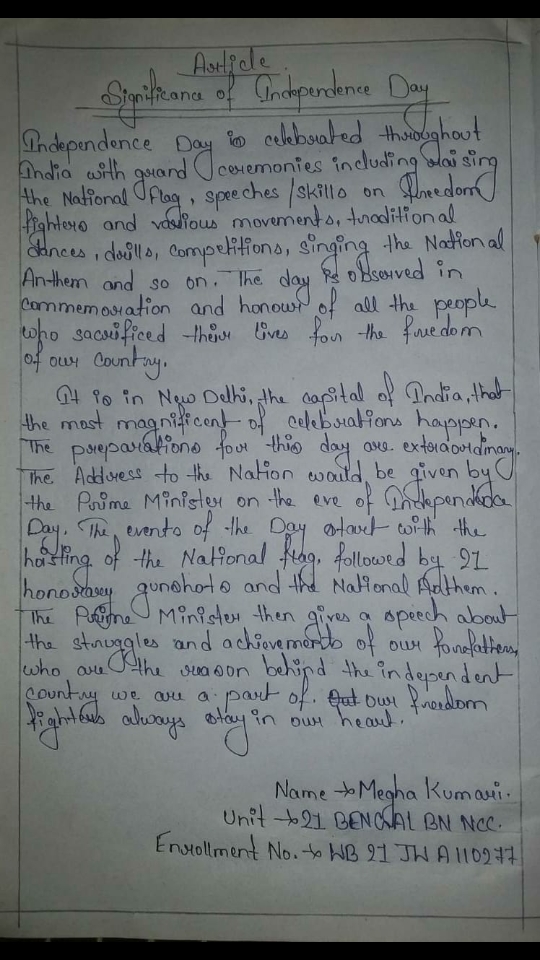 Article
Significance of Independence Day
Independence Day is celebrated throughout
India with grand ceremonies including raising
the National Flag, speeches/skills on freedom
fighters and various movements, traditional
dances, drills, competitions, singing the National
Anthem and so on. The day is observed in
commemoration and honour of all the people
who sacrificed their lives for the freedom
of our country.
It is in New Delhi, the capital of India, that
the most magnificent of celebrations happen.
The preparations for this day are extraordinary.
The Address to the Nation would be given by
the Prime Minister on the eve of Independence
Day. The events of the Day start with the
hoisting of the National flag, followed by 21
honorary gunshots and the National Anthem.
The Prime Minister then gives a speech about
the struggles and achievements of our forefathers,
who are the reason behind the independent
country we are a part of. our freedom
fighters always stay in our heart.
Name → Megha Kumari.
Unit → 21 BENGAL BN NCC.
Enrollment No. → WB 21 JW A 110277